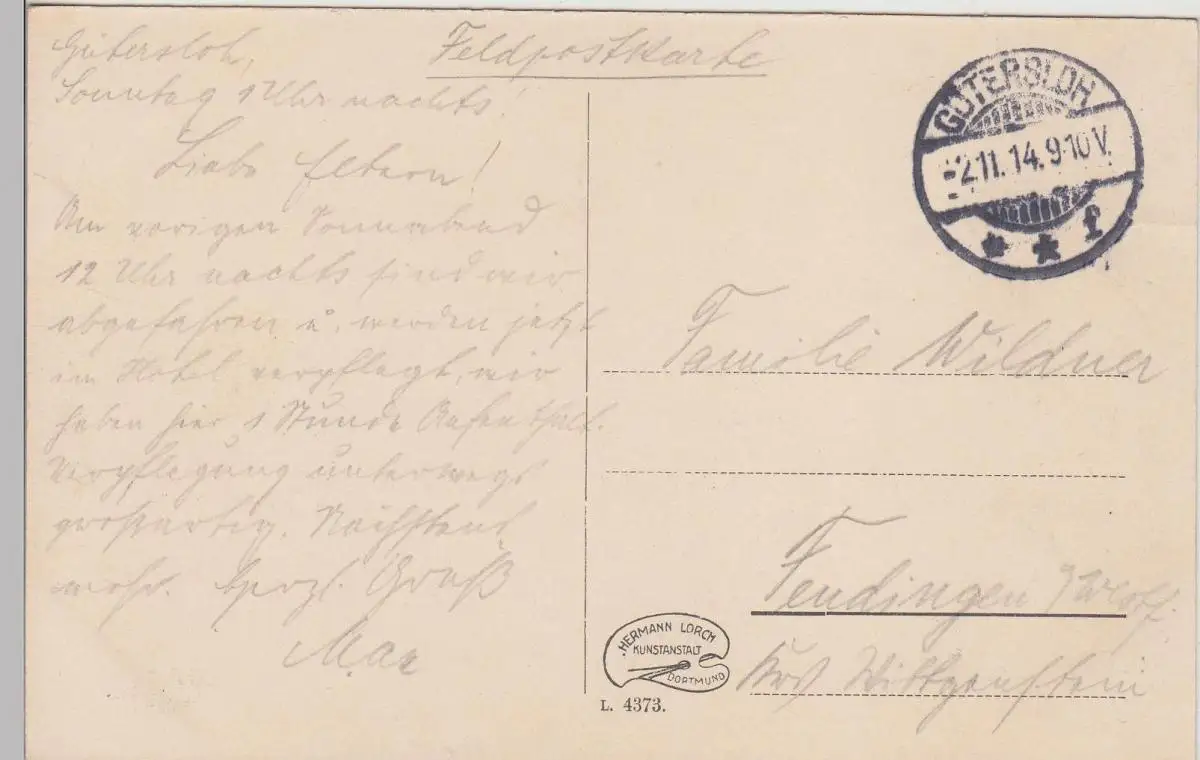 Gütersloh,
Sonntag 1 Uhr nachts!
Liebe Eltern!
Am vorigen Sonnabend
12 Uhr nachts sind wir
abgefahren u. werden jetzt
im Hotel verpflegt, wir
haben hier 1 Stunde Aufenthalt.
Verpflegung unterwegs
großartig. Nächstens
mehr. Herzl. Gruß
Max
Feldpostkarte
GÜTERSLOH
-2.11.14.9-10V.
* * f
Familie Wildner
Feudingen
Krs Wittgenstein
HERMANN LORCH
KUNSTANSTALT
DORTMUND
L. 4373.